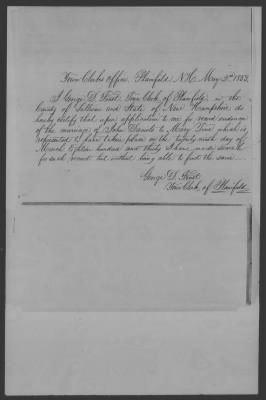 Town Clerks Office, Plainfield, N.H. May 3d 1853.
I George D. Frost, Town Clerk of Plainfield, in the
County of Sullivan and State of New Hampshire, do
hereby certify that upon application to me for record evidence
of the marriage of John Daniels to Mary which is
represented to have taken place on the twenty ninth day of
March Eighteen hundred and thirty I have made search
for such record but without being able to find the same
George D. Frost
Town Clerk of Plainfield